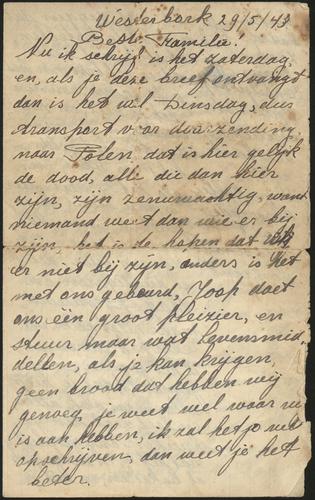 Westerbork 29/5/43
Beste Familie!
Nu ik schrijf is het zaterdag,
en, als je deze breef ontvangt
dan is het wel Dinsdag, dus
transport v or doorzending
naar Polen, dat is hier gelijk
de dood, alle die dan hier
zijn, zijn zenuwachtig, want
niemand weet dan wie er bij
zijn, het is de hopen dat wij
er niet bij zijn, anders is het
met ons gebeurd, Joop doet
ons één groot pleizier, en
stuur maar wat levensmid,
dellen, als je kan krijgen,
geen brood dat hebben wij
genoeg, je weet wel waar
is aan hebben, ik zal het je
opschrijven, dan weet je het
beter.